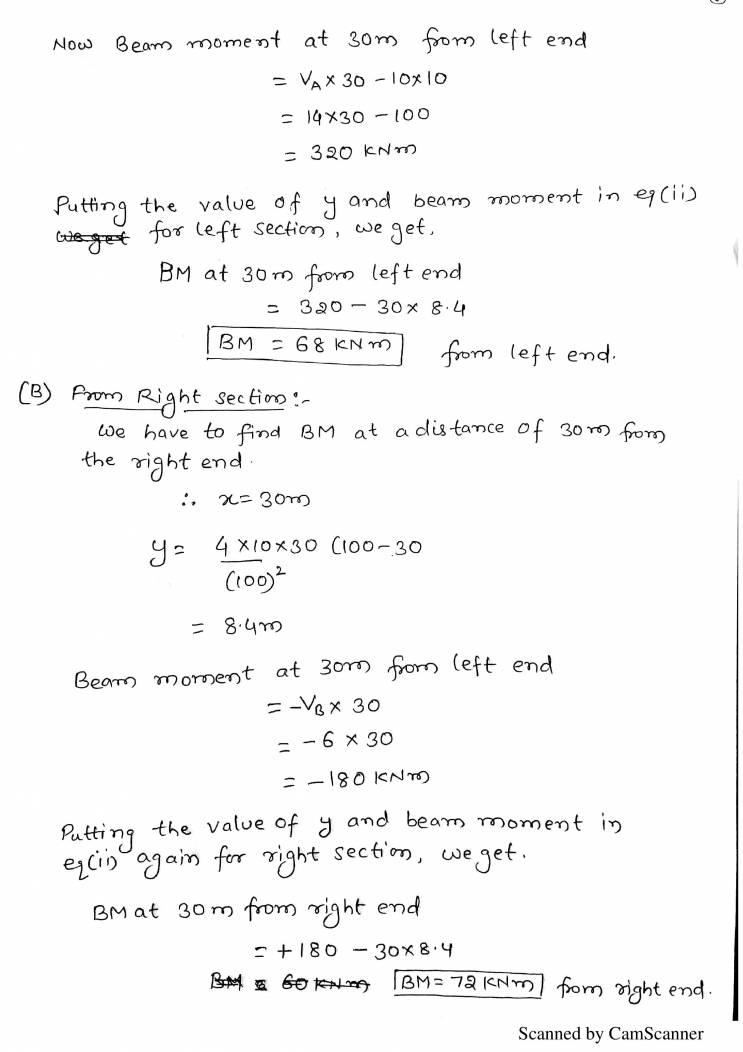 Now Beam moment at 30m from left end
= VA × 30 - 10×10
= 14×30 - 100
= 320 KNm
Putting the value of y and beam moment in eq(ii)
we get for left section, we get,
BM at 30m from left end
= 320 - 30× 8.4
BM = 68 KNm from left end.
(B) From Right section:-
We have to find BM at a distance of 30m from
the right end.
∴ x= 30m
y= 4×10×30 (100-30
(100)²
= 8.4m
Beam moment at 30m from left end
= -VB × 30
= - 6 × 30
= -180 KNm
Putting the value of y and beam moment in
eq(ii) again for right section, we get.
BM at 30m from right end
= +180 - 30×8.4
BM = 60 KNm BM= 72 KNm from right end.
Scanned by CamScanner